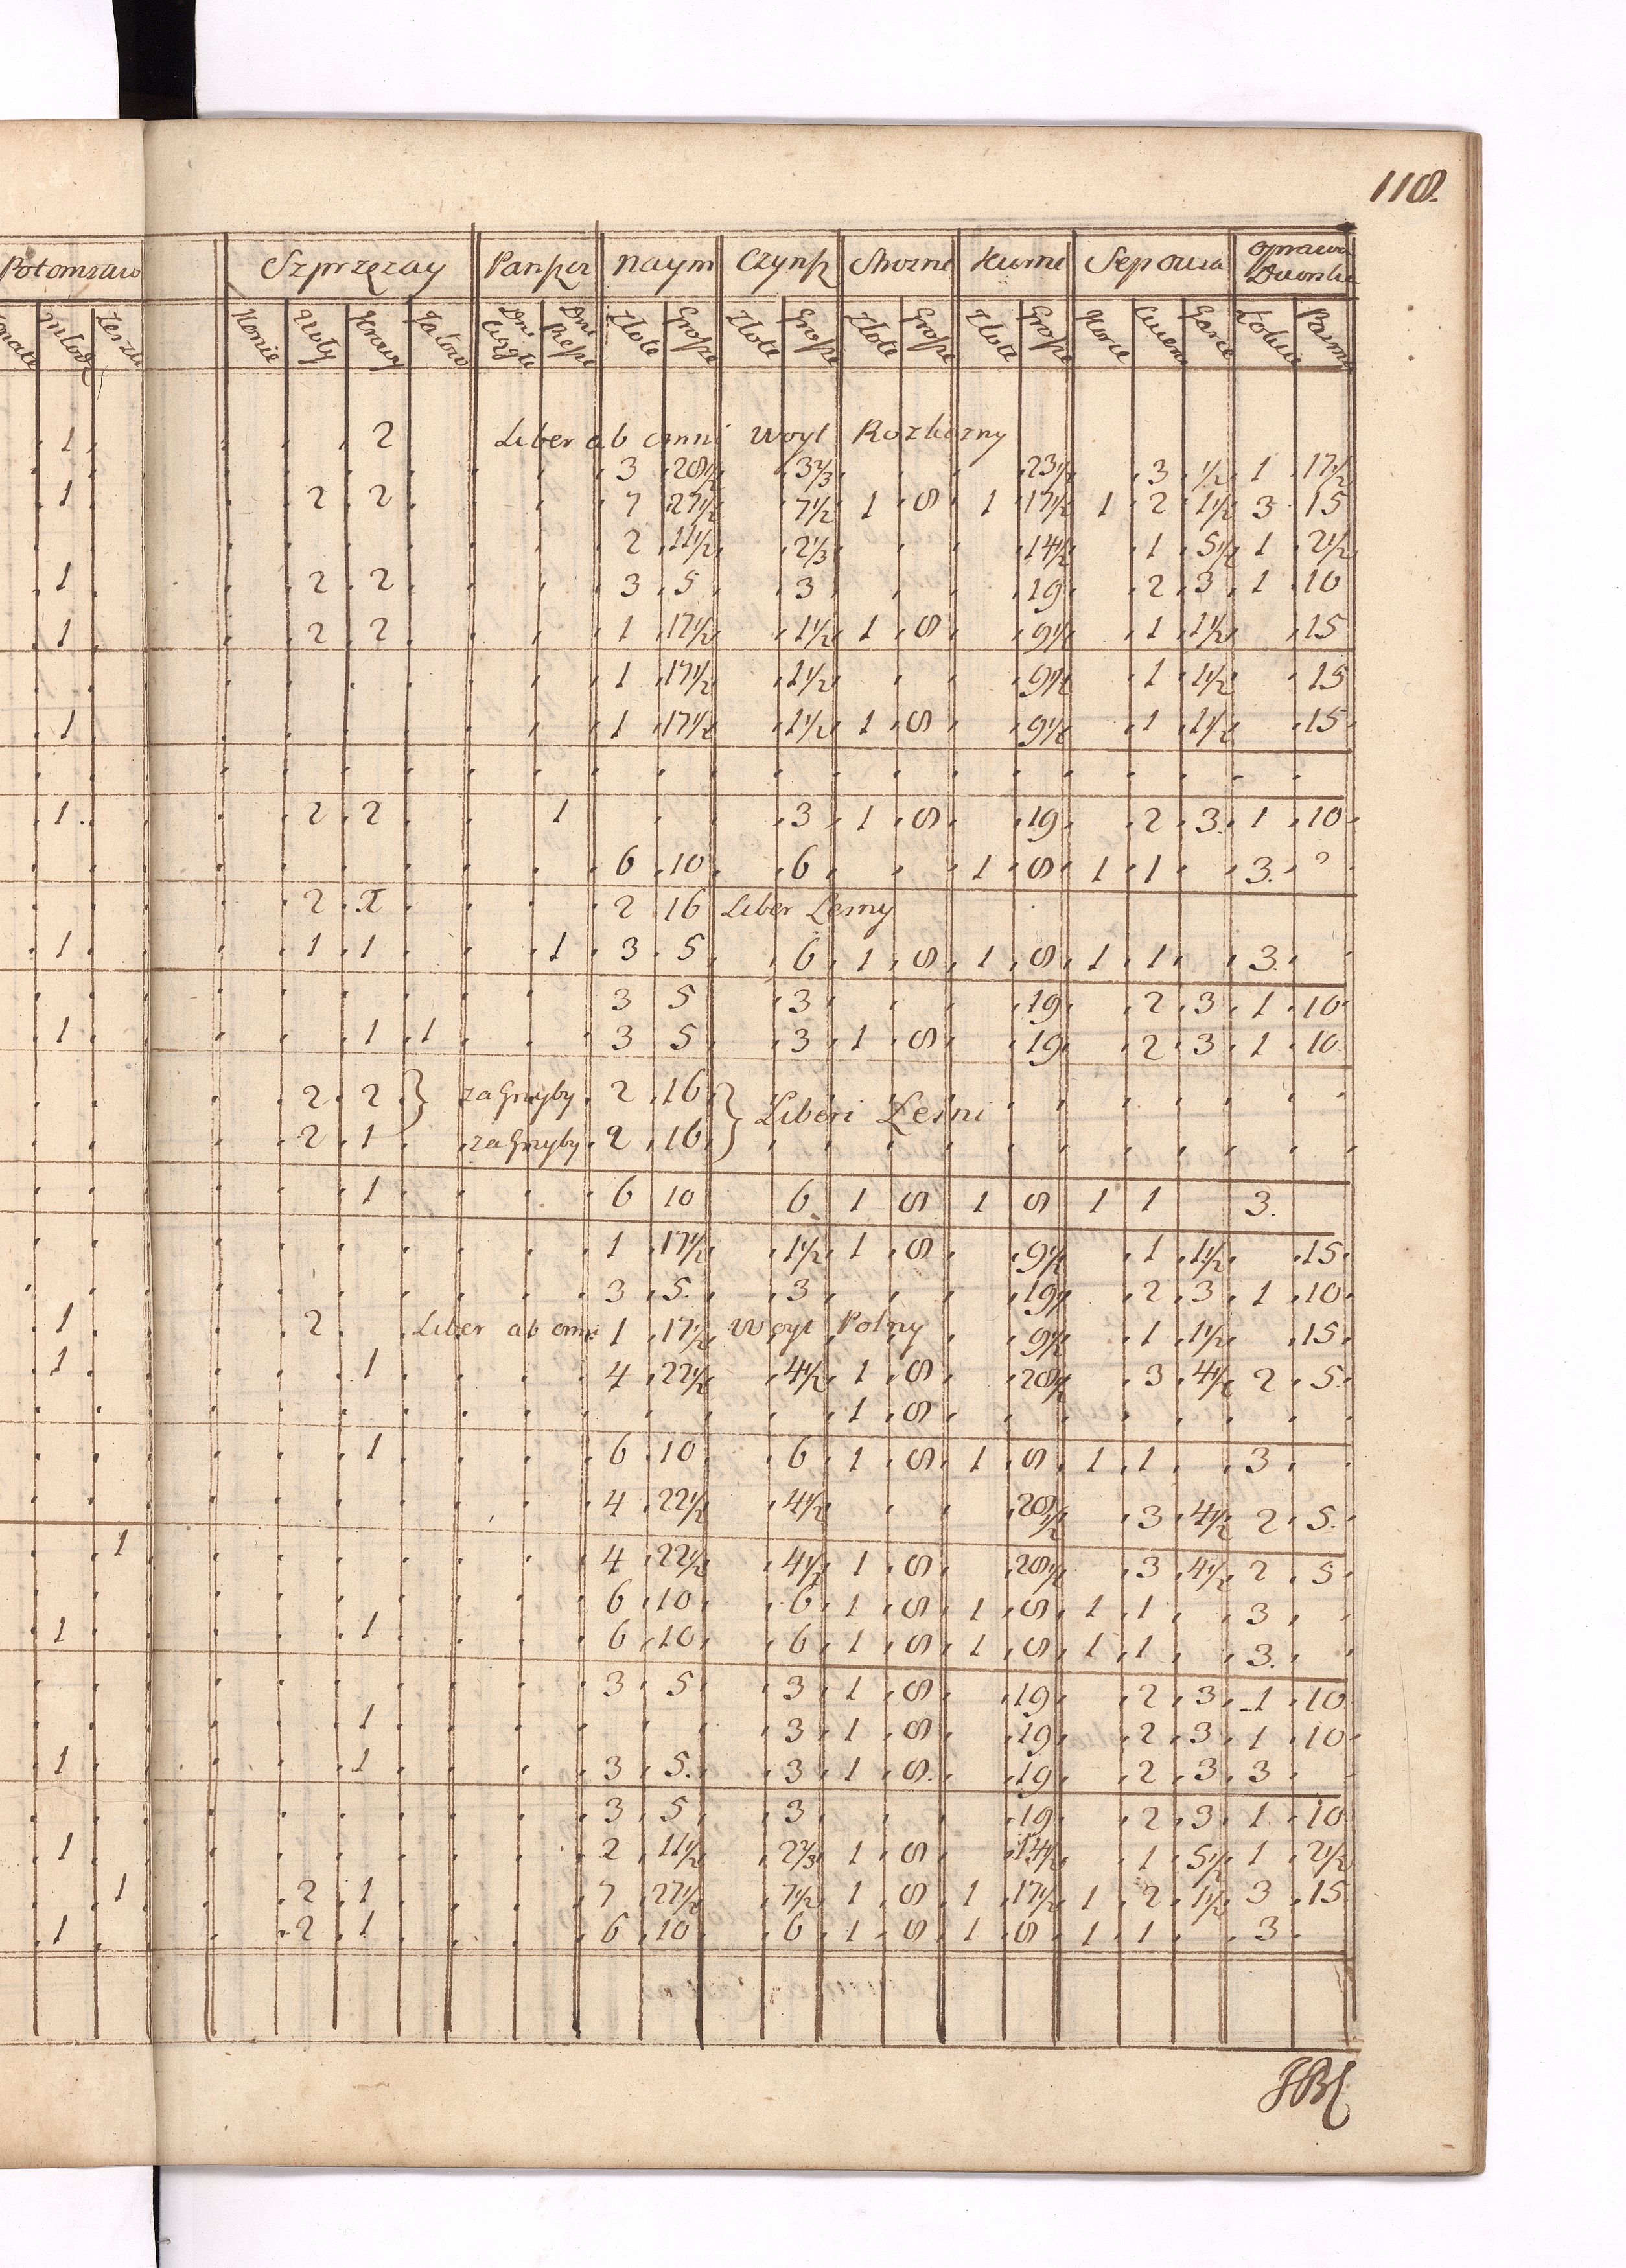 118.
Potomstwo Szprzęzay Panszcz Naym Czynsz Strożne Kurne Sep Owsa Oprawa Dworska
Młodz Konie Woły Krowy Jałow Dni Ciągłe Dni Piesze Złote Grosze Złote Grosze Złote Grosze Złote Grosze Korce Cwierci Garce Łokcie Pasma
1 2 Liber ab omni Woyt Rozkazny
3 28½ 3⅔ 23½ 3 ½ 1 17½
1 2 2 7 27½ 7½ 1 8 1 17½ 1 2 1½ 3 15
2 11½ 2⅓ 14½ 1 5½ 1 2½
1 2 2 3 5 3 19 2 3 1 10
1 2 2 1 17½ 1½ 1 8 9½ 1 1½ 15
1 17½ 1½ 9½ 1 1½ 15
1 1 17½ 1½ 1 8 9½ 1 1½ 15
1 2 2 1 3 1 8 19 2 3 1 10
6 10 6 1 8 1 1 3
2 2 2 16 Liber Lesny
1 1 1 1 3 5 6 1 8 1 8 1 1 3
3 5 3 19 2 3 1 10
1 1 1 3 5 3 1 8 19 2 3 1 10
2 2 } za Grzyby 2 16 } Liberi Lesni
2 1 za Grzyby 2 16
1 6 10 6 1 8 1 8 1 1 3
1 17½ 1½ 1 8 9½ 1 1½ 15
3 5 3 19 2 3 1 10
1 2 Liber ab omni 1 17½ Woyt Polny 9½ 1 1½ 15
1 1 4 22½ 4½ 1 8 28½ 3 4½ 2 5
1 8
1 6 10 6 1 8 1 8 1 1 3
4 22½ 4½ 28½ 3 4½ 2 5
1 4 22½ 4½ 1 8 28½ 3 4½ 2 5
6 10 6 1 8 1 8 1 1 3
1 1 6 10 6 1 8 1 8 1 1 3
3 5 3 1 8 19 2 3 1 10
1 3 1 8 19 2 3 1 10
1 1 3 5 3 1 8 19 2 3 3
3 5 3 19 2 3 1 10
1 2 11½ 2⅔ 1 8 14½ 1 5½ 1 2½
1 2 1 7 27½ 7½ 1 8 1 17½ 1 2 1½ 3 15
1 2 1 6 10 6 1 8 1 8 1 1 3